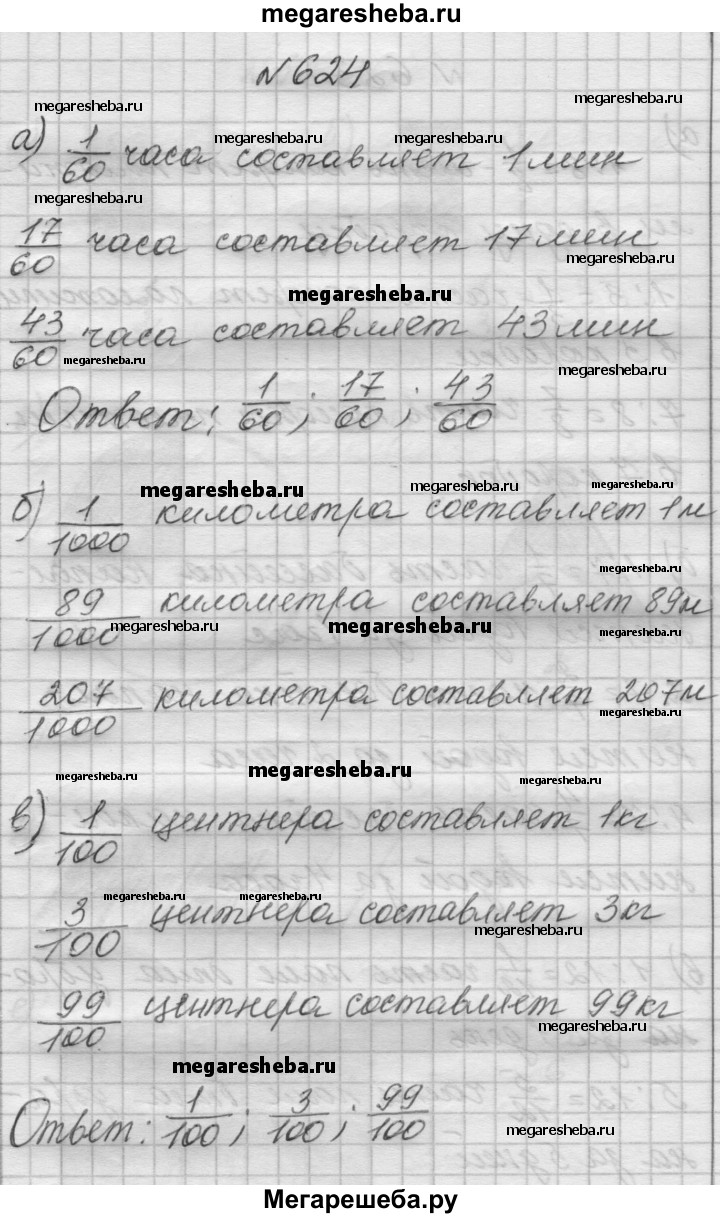 megaresheba.ru
№624
megaresheba.ru
megaresheba.ru
megaresheba.ru
megaresheba.ru
а) 1/60 часа составляет 1 мин
megaresheba.ru
17/60 часа составляет 17 мин
megaresheba.ru
megaresheba.ru
43/60 часа составляет 43 мин
megaresheba.ru
megaresheba.ru
Ответ: 1/60; 17/60; 43/60
megaresheba.ru
megaresheba.ru
б) 1/1000 километра составляет 1 м
megaresheba.ru
89/1000 километра составляет 89 м
megaresheba.ru
megaresheba.ru
megaresheba.ru
207/1000 километра составляет 207 м
megaresheba.ru
megaresheba.ru
megaresheba.ru
megaresheba.ru
в) 1/100 центнера составляет 1 кг
megaresheba.ru
megaresheba.ru
3/100 центнера составляет 3 кг
megaresheba.ru
99/100 центнера составляет 99 кг
megaresheba.ru
megaresheba.ru
Ответ: 1/100; 3/100; 99/100
megaresheba.ru
Мегарешеба.ру